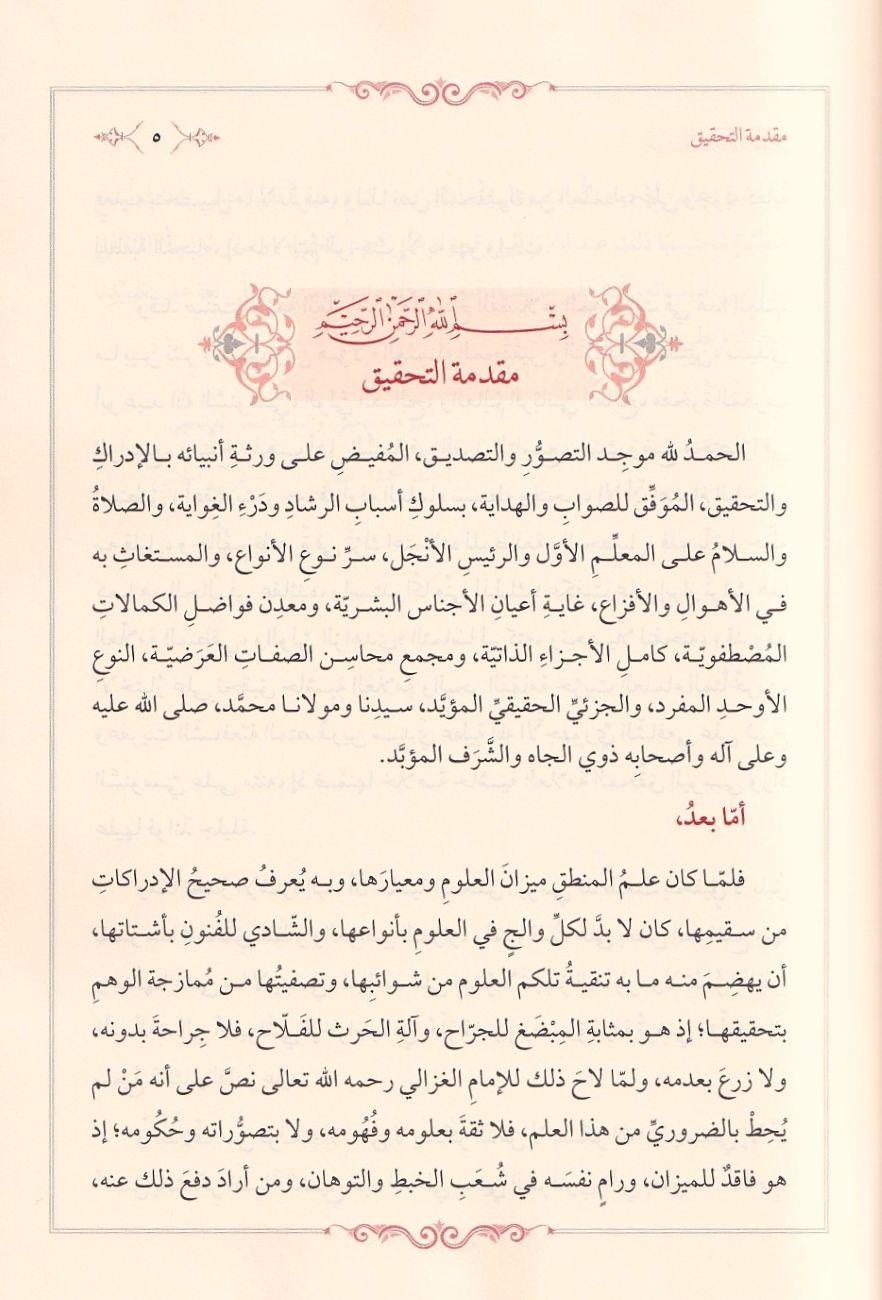 مقدمة التحقيق
٥
بِسْمِ اللهِ الرَّحْمَنِ الرَّحِيْمِ
مقدمة التحقيق
الحمـدُ لله موجِـد التصـوُّرِ والتصديـق، المُفيـضِ علـى ورثـةِ أنبيائه بـالإدراكِ
والتحقيق، المُوَفِّق للصوابِ والهداية، بسلوكِ أسبابِ الرشادِ ودَرْءِ الغِواية، والصلاةُ
والسـلامُ علـى المعلِّـمِ الأوَّل والرئيسِ الأنْجَل، سـرِّ نـوعِ الأنواع، والمسـتغاثِ به
فـي الأهـوالِ والأفزاع، غايـةِ أعيانِ الأجناس البشـريّة، ومعدِن فواضـلِ الكمالاتِ
المُصْطفويّـة، كامـلِ الأجـزاءِ الذاتيّة، ومجمعِ محاسـن الصفـاتِ العَرَضيّـة، النوعِ
الأوحـدِ المفرد، والجزئيِّ الحقيقيِّ المؤيَّد، سـيدِنا ومولانـا محمَّد، صلى الله عليه
وعلى آله وأصحابِه ذوي الجاه والشَّرَف المؤبَّد.
أمّا بعدُ،
فلمّـا كان علـمُ المنطقِ ميزانَ العلومِ ومعيارَها، وبـه يُعرفُ صحيحُ الإدراكاتِ
من سـقيمِها، كان لا بدَّ لكلِّ والجٍ في العلومِ بأنواعها، والشّادي للفُنونِ بأشتاتها،
أن يهضِـمَ منـه مـا به تنقيـةُ تلكم العلوم من شـوائبِها، وتصفيتُها مـن مُمازجة الوهمِ
بتحقيقهـا؛ إذ هـو بمثابةِ المِبْضَغ للجرّاح، وآلةِ الحَرث للفَـلّاح، فلا جِراحةَ بدونه،
ولا زرعَ بعدمه، ولمّا لاحَ ذلك للإمامِ الغزالي رحمه الله تعالى نصَّ على أنه مَنْ لم
يُحِطْ بالضروريِّ من هذا العلم، فلا ثقةَ بعلومه وفُهُومه، ولا بتصوُّراته وحُكُومه؛ إذ
هو فاقدٌ للميزان، ورامٍ نفسَـه في شُـعَبِ الخبطِ والتوهان، ومن أرادَ دفعَ ذلك عنه،